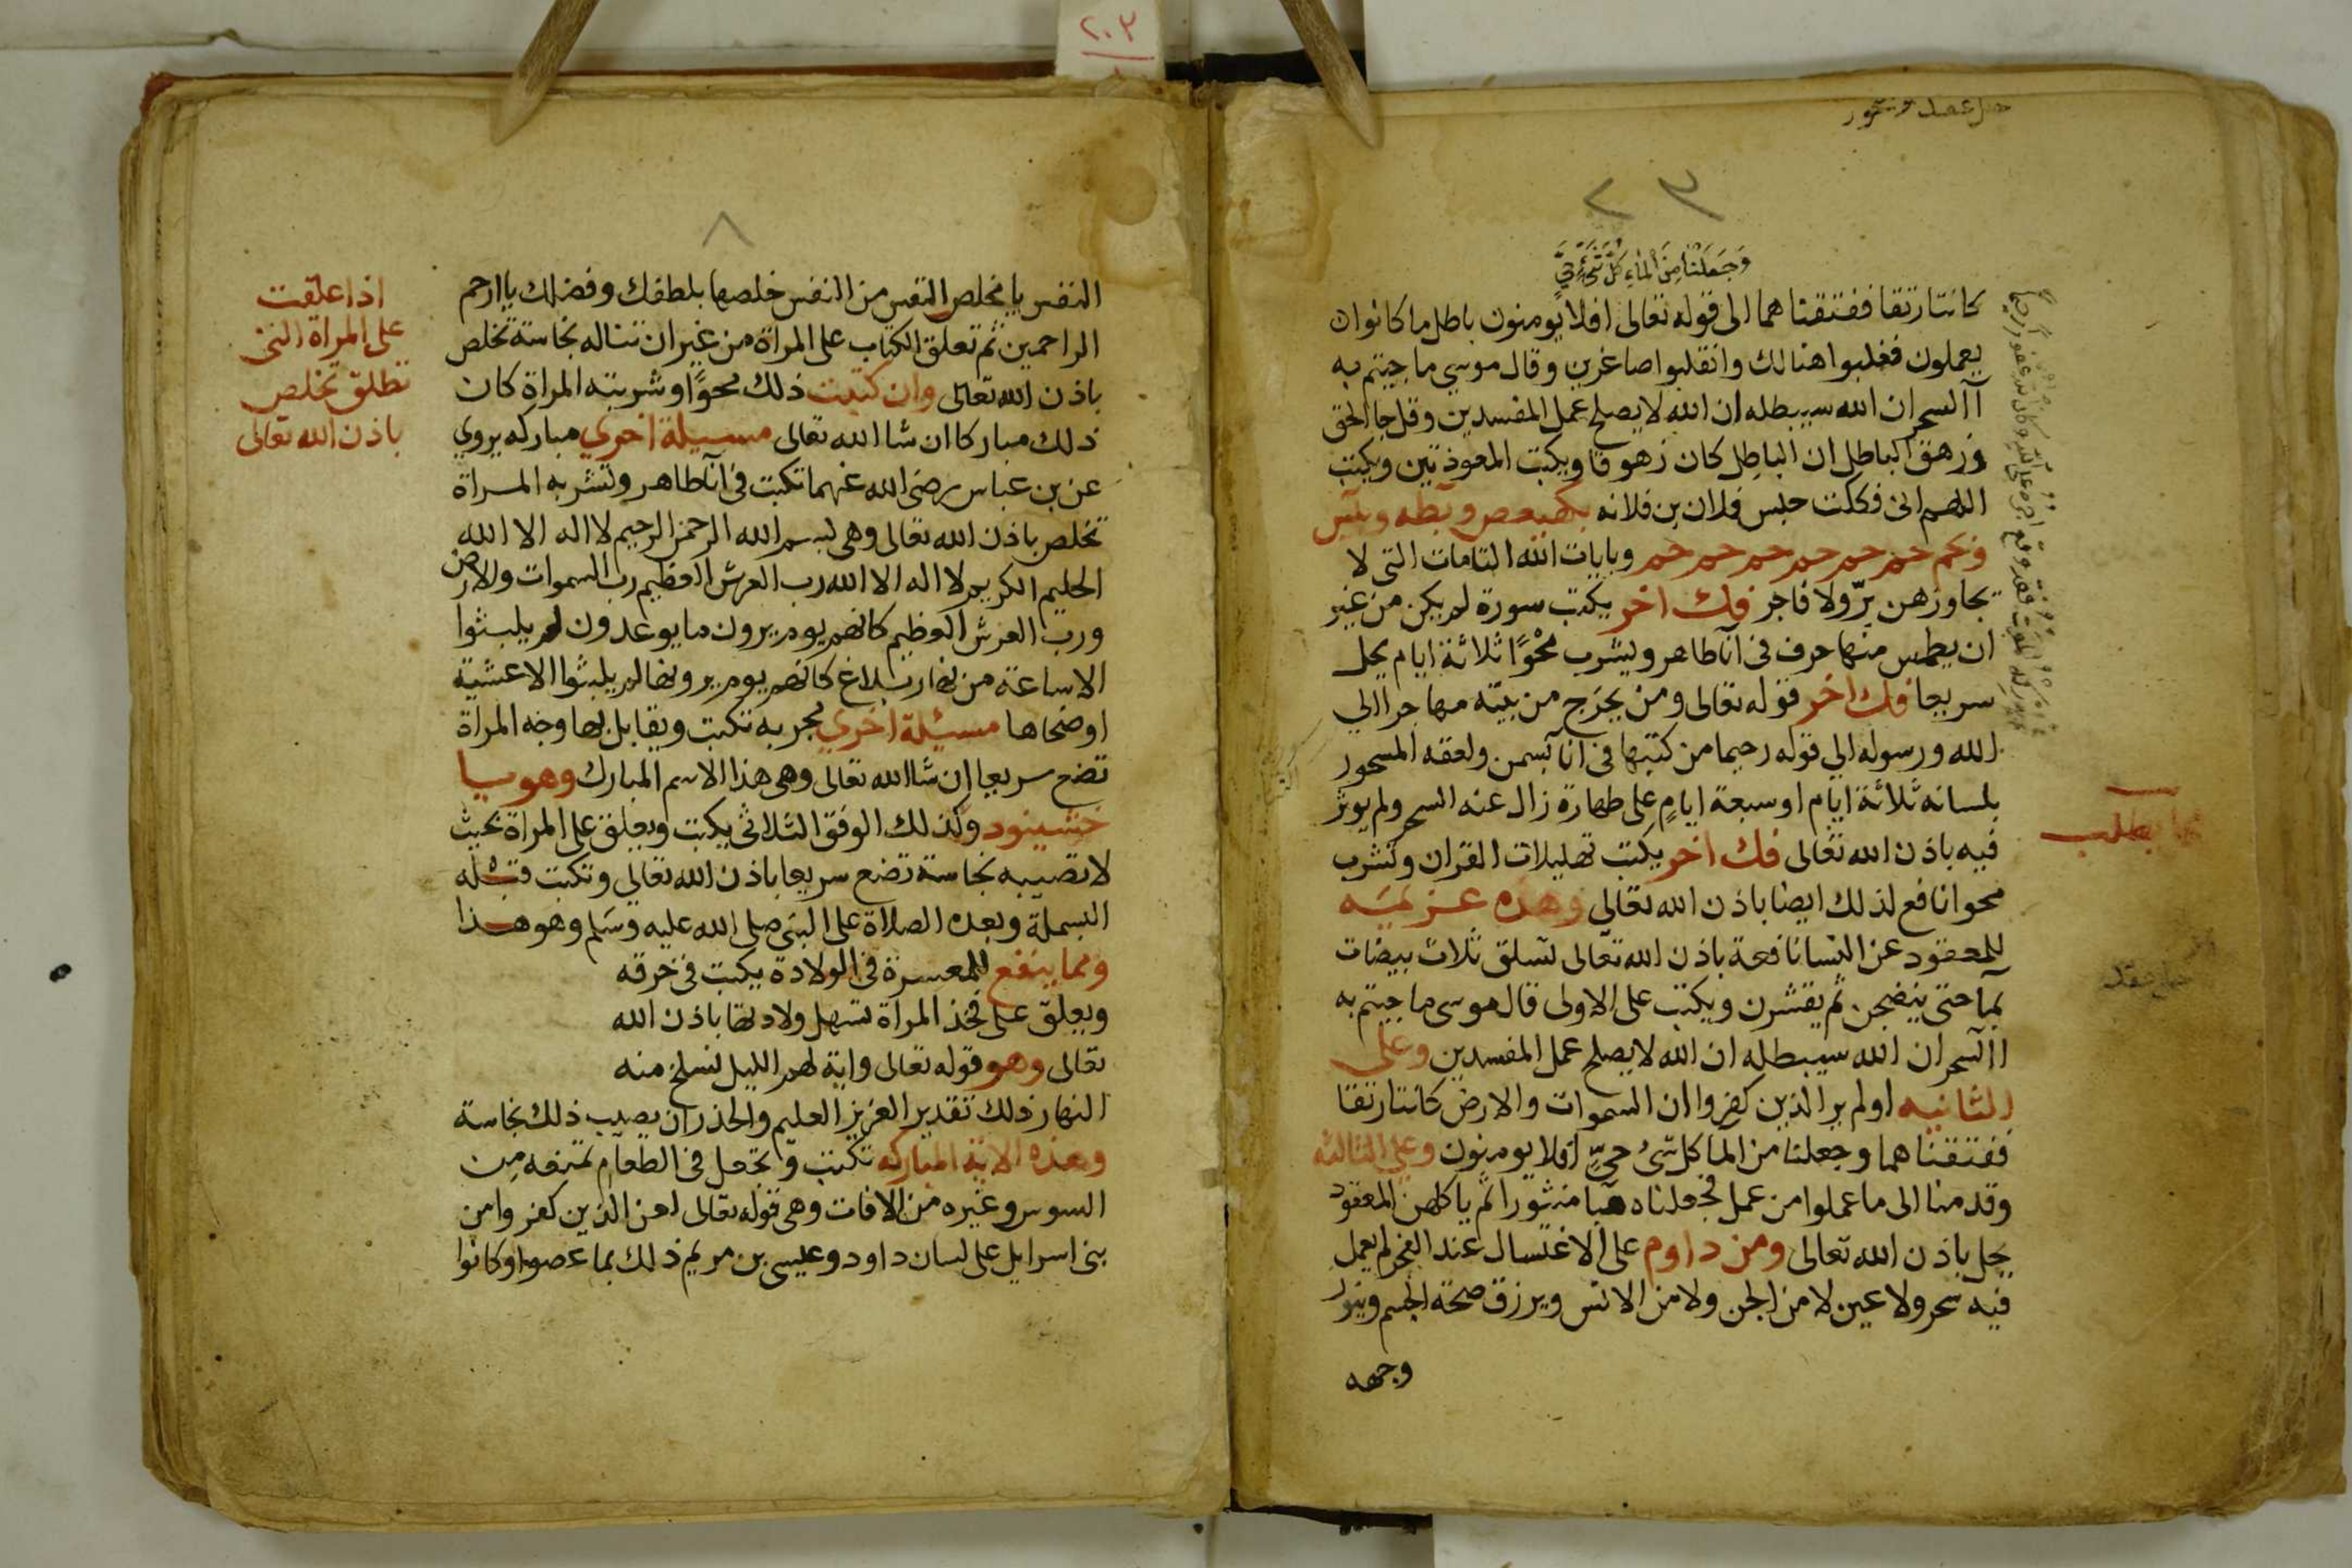 ٢٠٣
٢٣
وَجَعَلْنَا مِنَ الْمَاءِ كُلَّ شَيْءٍ حَيٍّ
كانتا رتقا ففتقنا هما الى قوله تعالى افلا يومنون باطل ما كانوا
يعملون فغلبوا هنالك وانقلبوا صاغرين وقال موسي ما جيتم به
آالسحر ان الله سيبطله ان الله لا يصلح عمل المفسدين وقل جا الحق
وزهق الباطل ان الباطل كان زهوقا ويكبت المعوذتين ويكتب
اللهم انى فككت حبس فلان بن فلانه بكهيعص وبطه وبيس
وبحم حم حم حم حم حم حم وبايات الله التامات التى لا
يجاوزهن برّ ولا فاجر فك اخر يكتب سورة لم يكن من غير
ان يطمس منها حرف فى انآ طاهر ويشرب محْوًا ثلاثة ايام يحل
سريعا فك اخر قوله تعالى ومن يخرج من بيته مهاجرا الي
الله ورسوله الي قوله رحيما من كتبها فى انا بسمن ولعقه المسحور
بلسانه ثلاثة ايام او سبعة ايامٍ على طهارة زال عنه السحر ولم يوثر
فيه باذن الله تعالى فك اخر يكتب تهليلات القران وتشرب
محوا نافع لذلك ايضا باذن الله تعالى وهذه عزيمه
للمعقود عن النسا نافعة باذن الله تعالى تسلق ثلاث بيضات
بمآ حتى ينضجن ثم يقشرن ويكتب على الاولى قال موسى ما جيتم به
االسحر ان الله سيبطله ان الله لا يصلح عمل المفسدين وعلى
الثانيه اولم ير الذين كفروا ان السموات والارض كانتا رتقا
ففتقناهما وجعلنا من الما كل شئ حيٍّ افلا يومنون وعلي الثالثه
وقدمنا الى ما عملوا من عمل فجعلناه هبا منثورا ثم ياكلهن المعقود
يحل باذن الله تعالى ومن داوم على الاغتسال عند الفجر لم يعمل
فيه سحر ولا عين لا من الجن ولا من الانس ويرزق صحة الجسم وينور
وجهه
٨
النفس يا مخلص النفس من النفس خلصها بلطفك وفضلك يا ارحم
الراحمين ثم تعلق الكتاب على المراة من غير ان تناله نجاسة تخلص
باذن الله تعالى وان كتبت ذلك محوًا وشربته المراة كان
ذلك مباركا ان شا الله تعالى مسيلة اخري مباركه يروي
عن بن عباس رضى الله عنهما تكبت فى انآ طاهر وتشربه المراة
تخلص باذن الله تعالى وهى بسم الله الرحمن الرحيم لا اله الا الله
الحليم الكريم لا اله الا الله رب العرش العظيم رب السموات والارض
ورب العرش العظيم كانهم يوم يرون ما يوعدون لم يلبثوا
الا ساعة من نهار بلاغ كانهم يوم يرونها لم يلبثوا الا عشية
او ضحاها مسيلة اخري مجربه تكتب ويقابل بها وجه المراة
تضع سريعا ان شا الله تعالى وهى هذا الاسم المبارك وهو سيا
خشينود وكذلك الوفق الثلاثى يكبت ويعلق على المراة بحيث
لا تصيبه نجاسة تضع سريعا باذن الله تعالى وتكبت قبله
البسملة وبعده الصلاة على النبى صلى الله عليه وسلم وهو هذا
ومما ينفع للمعسرة فى الولادة يكبت فى خرقه
ويعلق على فخذ المراة تسهل ولادتها باذن الله
تعالى وهو قوله تعالى واية لهم الليل نسلخ منه
النهار ذلك تقدير العزيز العليم والحذر ان يصيب ذلك نجاسة
وهذه الاية المباركه تكتب وتجعل فى الطعام تمنعه من
السوس وغيره من الافات وهى قوله تعالى لعن الذين كفروا من
بنى اسرايل على لسان داود وعيسى بن مريم ذلك بما عصوا وكانوا
اذا علقت
على المراة التى
تطلق تخلص
باذن الله تعالى